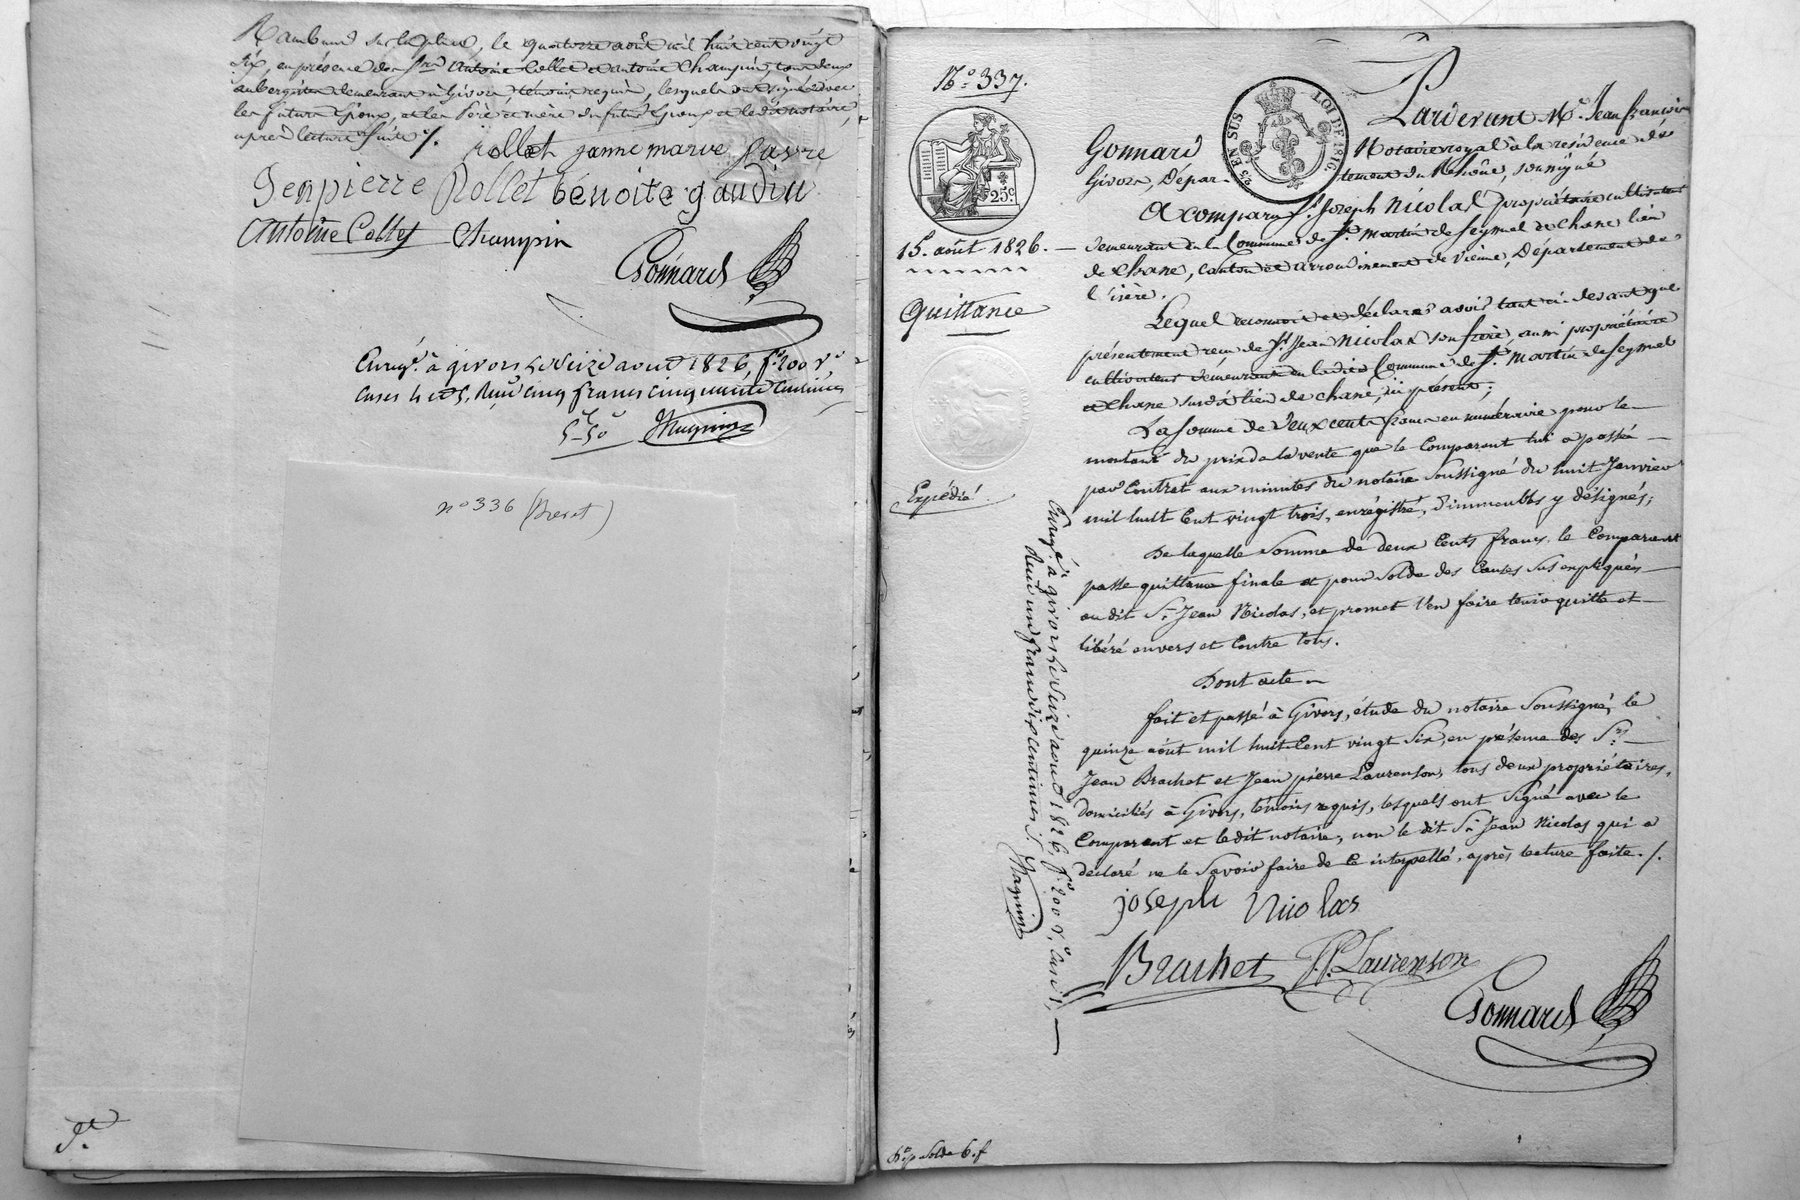 Rambaud sur la place, le quatorze août mil huit cent vingt
six, en présence des Srs Antoine Collet et antoine Champin, tous deux
aubergistes demeurant à Givors témoins requis, lesquels ont signé avec
les futurs Epoux, et les Père et mère du futur Epoux et le dit notaire,
après lecture faite ./.
rollet janne marie favre
Jenpierre Rollet bénoite gaudin
Antoine Collet Champin
Gonnard
Enregt. à givors le Seize aout 1826, f° 200 v°
cases 4 et 5, Reçu cinq francs cinquante centimes
5-50
n° 336 (Brevet)
N° 337.
25c
15. août 1826.
Quittance
Expédié
25 EN SUS LOI DE 1816
Pardevant Me. Jean françois
Gonnard Notaire royal à la résidence de
Givors, Département du Rhône, soussigné
A comparu Sr. Joseph Nicolas propriétaire cultivateur
demeurant en la Commune de St. Martin de Seyssuel et Chane lieu
de Chane, canton et arrondissement de Vienne, Département de
l'isère.
Lequel reconnoit et déclare avoir tant ci-devant que
présentement reçu de Sr. Jean Nicolas son frère, aussi propriétaire
cultivateur demeurant en ladite Commune de St. Martin de Seyssuel
et Chane susdit lieu de chane, ici présent;
La somme de deux cents francs en numéraire pour le
montant du prix de la vente que le Comparant lui a passée
par Contrat aux minutes du notaire soussigné du huit Janvier
mil huit Cent vingt trois, enrégistré, d'immeubles y désignés;
De laquelle Somme de deux Cents francs, le Comparant
passe quittance finale et pour Solde des Causes Sus expliquées
au dit Sr. Jean Nicolas, et promet l'en faire tenir quitte et
libéré envers et Contre tous.
Dont acte
fait et passé à Givors, étude du notaire Soussigné, le
quinze aôut mil huit Cent vingt Six, en présence des Srs.
Jean Brachet et Jean pierre Laurenson, tous deux propriétaires,
domiciliés à Givors, témoins requis, lesquels ont Signé avec le
Comparant et le dit notaire, non le dit Sr. Jean Nicolas qui a
declaré ne le Savoir faire de ce interpellé, après lecture faite ./.
joseph Nicolas
Brachet J.P. Laurenson
Gonnard
Enregt. à givors le Seize aout 1826, f° 200 v°, case 1,
Reçu un franc dix centimes